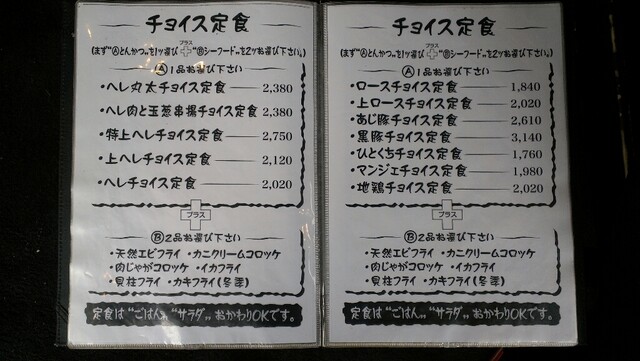 チョイス定食
(まず"Ⓐとんかつ"を1ッ選び プラス "Ⓑシーフード"を2ッお選び下さい。)
Ⓐ1品お選び下さい
・ヘレ丸太チョイス定食 2,380
・ヘレ肉と玉葱串揚チョイス定食 2,380
・特上ヘレチョイス定食 2,750
・上ヘレチョイス定食 2,120
・ヘレチョイス定食 2,020
プラス
Ⓑ2品お選び下さい
・天然エビフライ ・カニクリームコロッケ
・肉じゃがコロッケ ・イカフライ
・貝柱フライ ・カキフライ(冬季)
定食は"ごはん" "サラダ" おかわりOKです。
チョイス定食
(まず"Ⓐとんかつ"を1ッ選び プラス "Ⓑシーフード"を2ッお選び下さい。)
Ⓐ1品お選び下さい
・ロースチョイス定食 1,840
・上ロースチョイス定食 2,020
・あじ豚チョイス定食 2,610
・黒豚チョイス定食 3,140
・ひとくちチョイス定食 1,760
・マンジェチョイス定食 1,980
・地鶏チョイス定食 2,020
プラス
Ⓑ2品お選び下さい
・天然エビフライ ・カニクリームコロッケ
・肉じゃがコロッケ ・イカフライ
・貝柱フライ ・カキフライ(冬季)
定食は"ごはん" "サラダ" おかわりOKです。